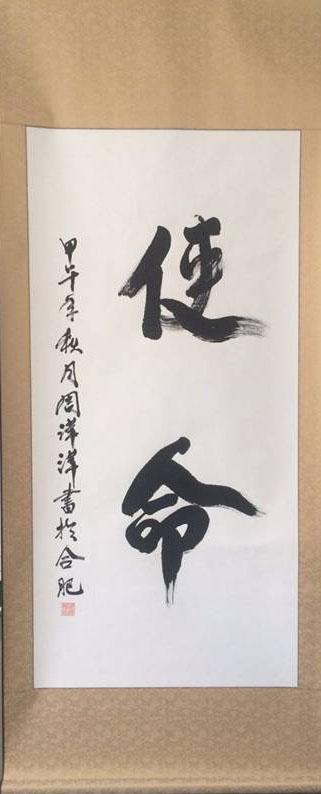 使命
甲午年秋月周洋洋書於合肥